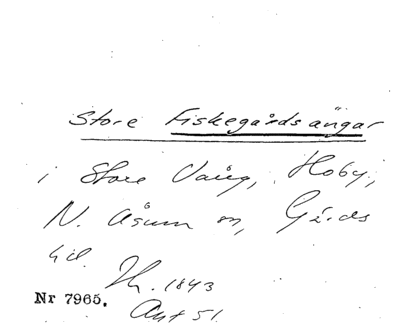 Store Fiskegårdsängar
i Store Vång, Hoby,
N. Åsum sn, Gärds
hd.
Th. 1843
Nr 7965.
Akt 51.